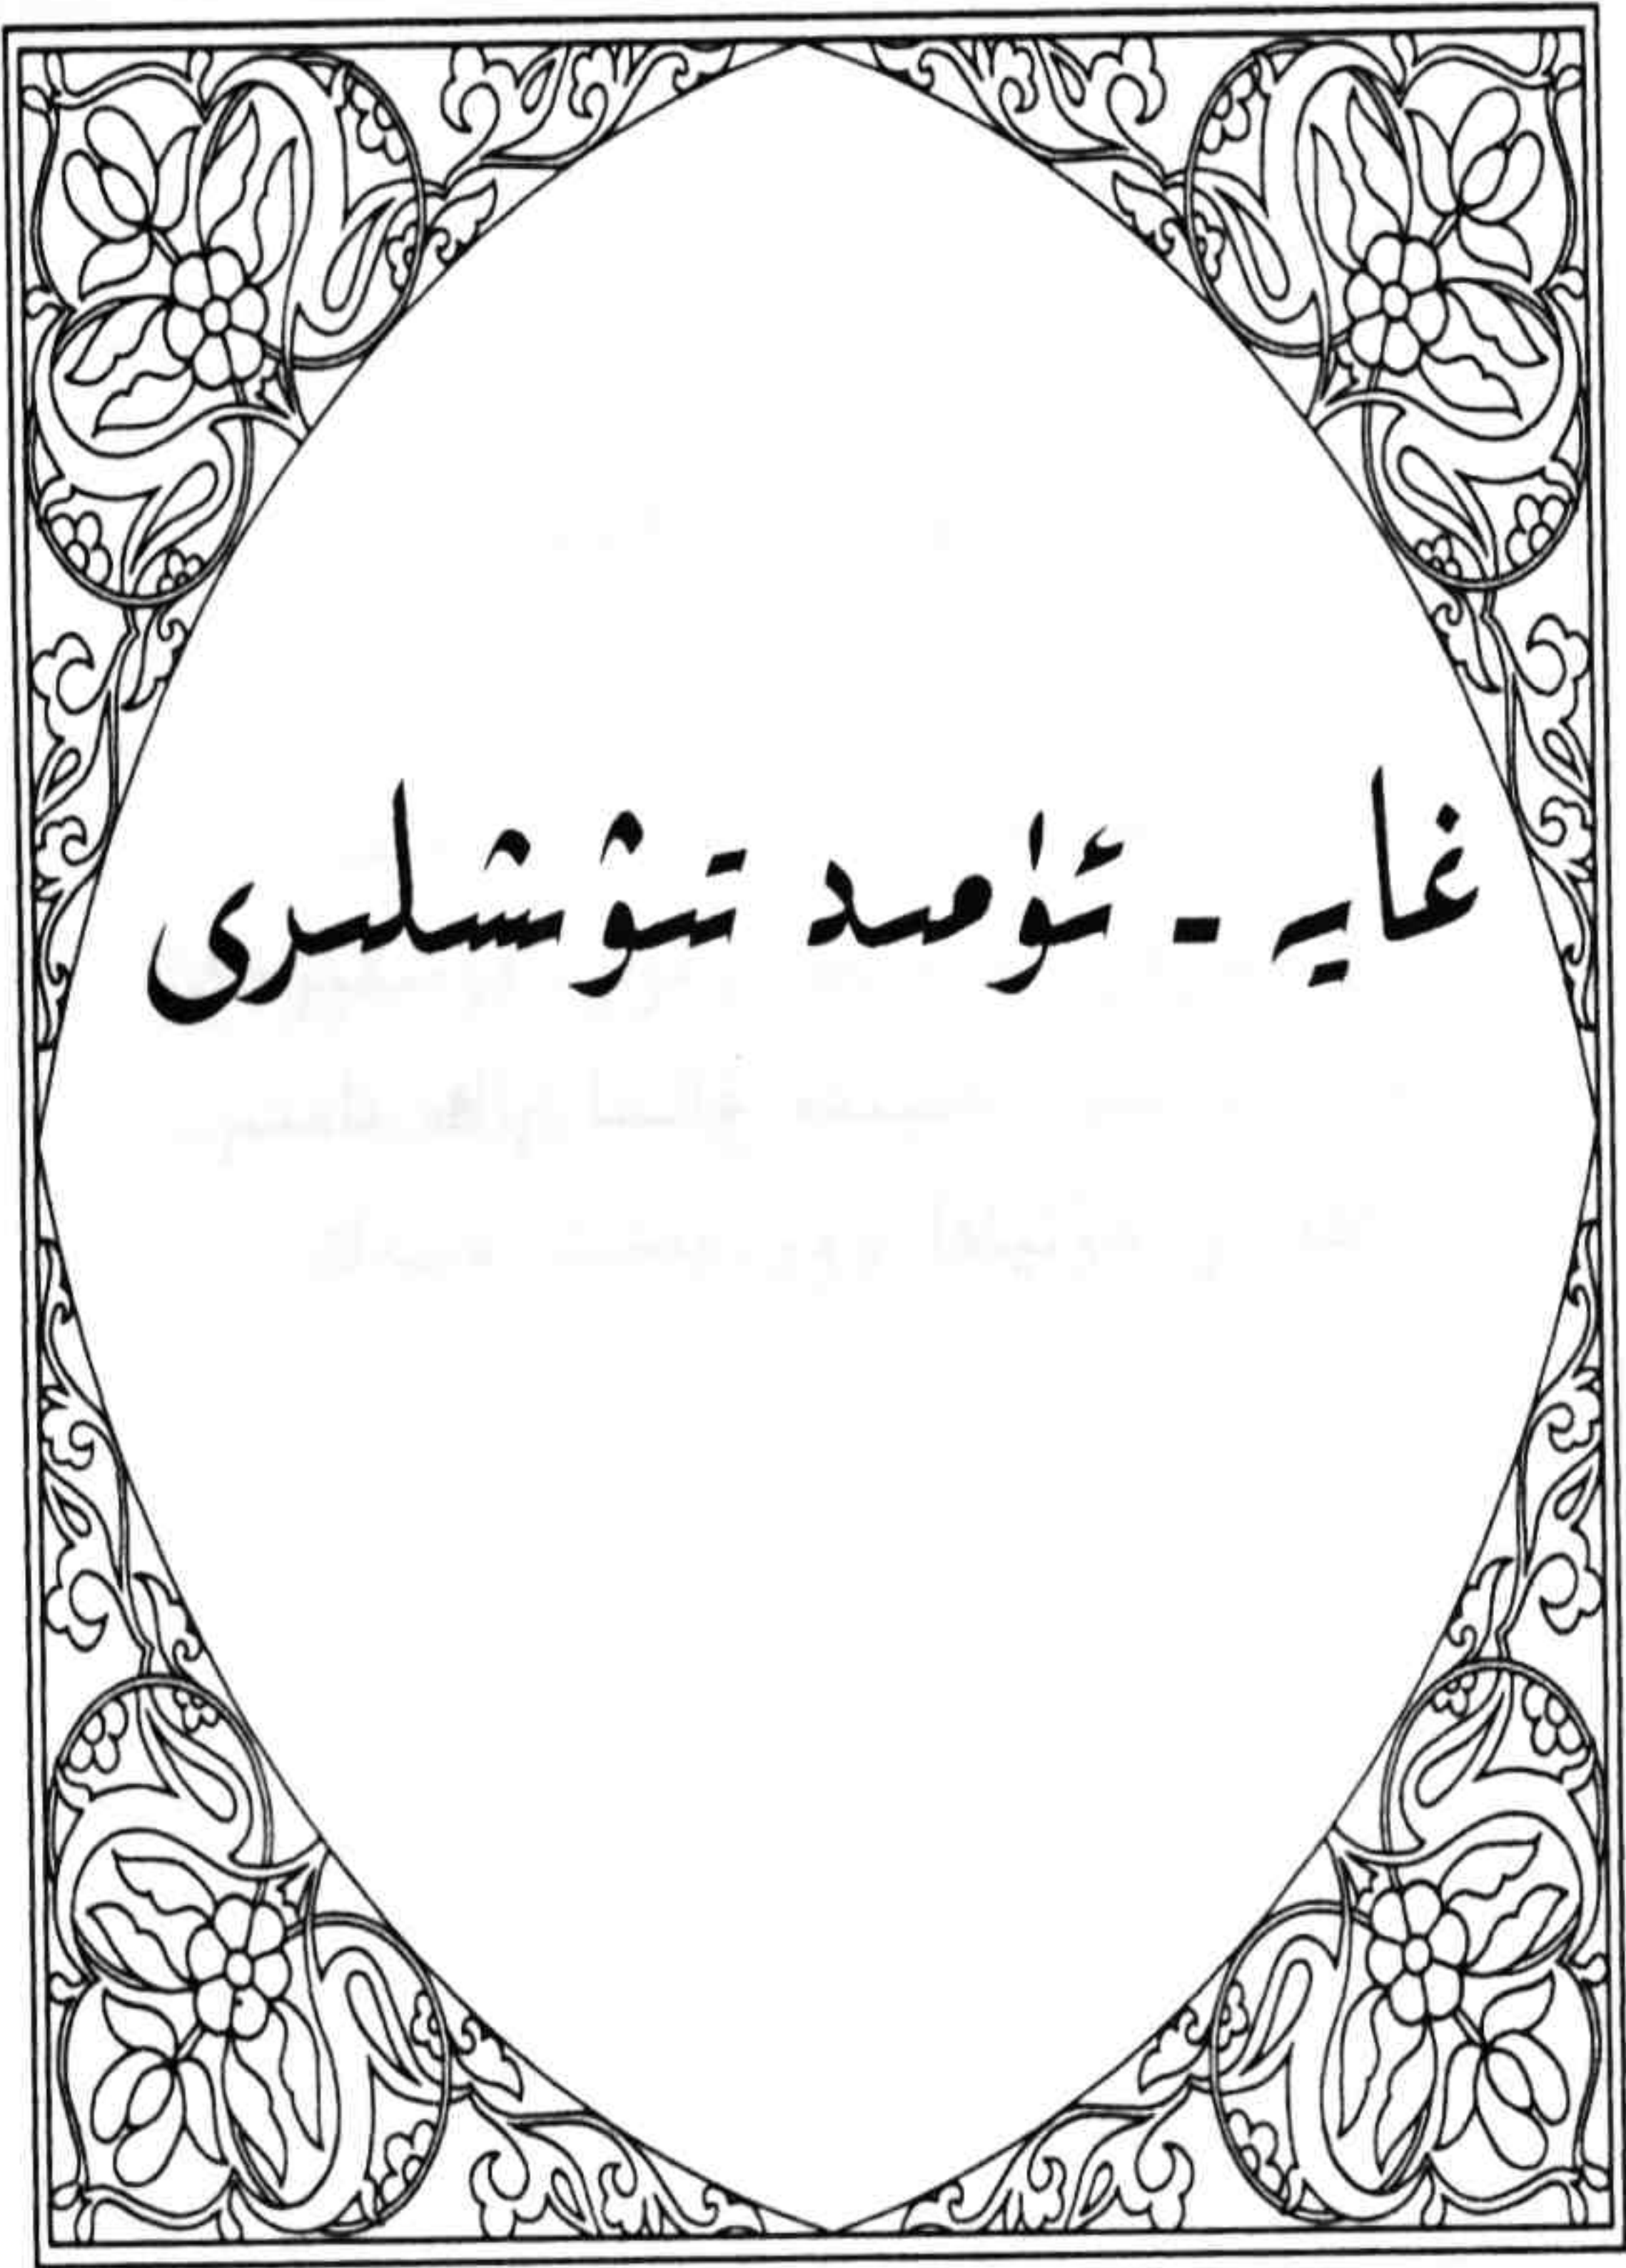 غايە - ئۈمىد تىۋىشلىرى